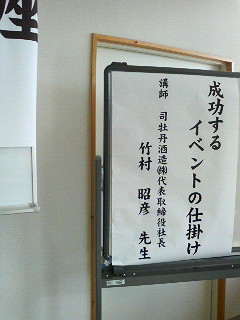 成功する
イベントの仕掛け
講師 司牡丹酒造㈱代表取締役社長
竹村 昭彦 先生
座